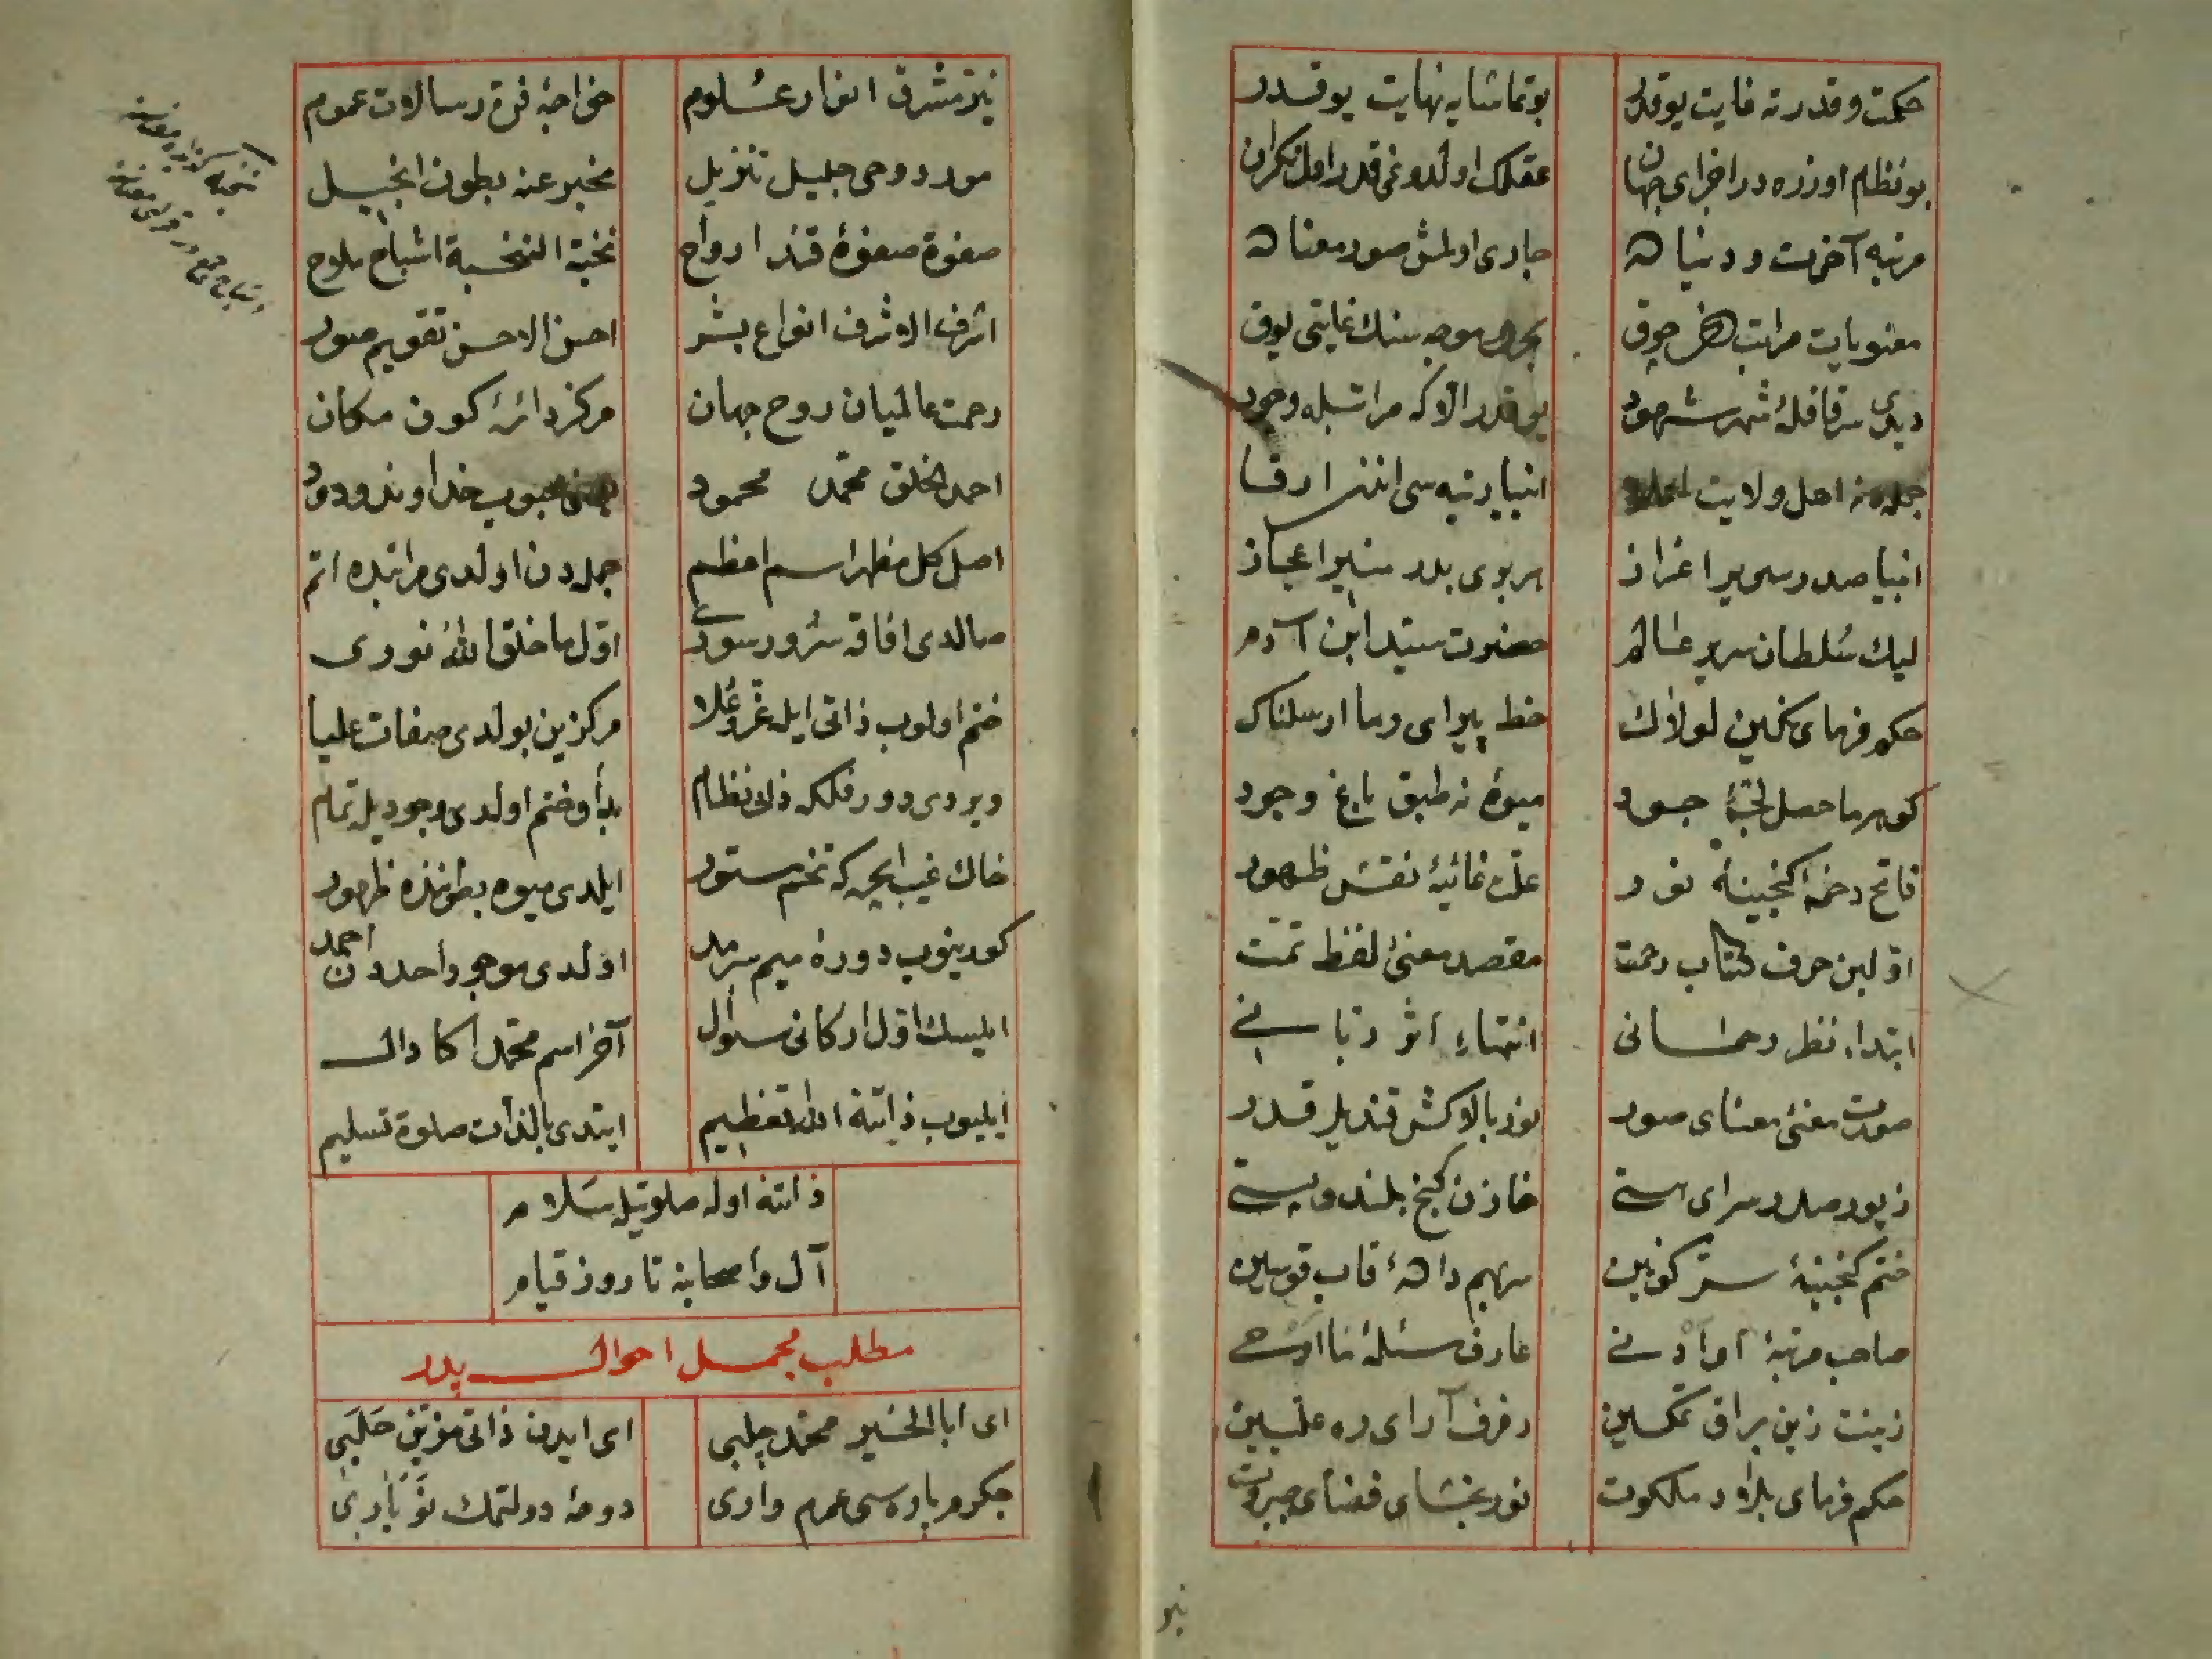 حكمت و قدرته غايت يوقدر بو تماشايه نهايت يوقدر
بو نظام اوزره در اجزای جهان عقلك اولدوغی قدر اول نكران
مرتبه آخرت و دنياده جاری اولمش صور معناده
معنويات مراتب دخی چوق بحر موجه سنك غايتی يوق
ديدی سر قافلهٔ شهر شهود يوقدر الا كه مراتبله وجود
جمله دن اهل ولايت انبيا رتبه سی اندن ارفا
انبيا صدر سرير اعزاز هر بری بدر منير اعجاز
ليك سُلطان سرير عالم حضرت سيّد ابن آدم
حكم فرمای نكين لولاك خط پيرای وما ارسلناك
كوهر ما حصل لجّهٔ جود ميوهٔ نه طبق باغ وجود
فاتح رخنهٔ كنجينهٔ نور علّت غائيهٔ نقش ظهور
اوّلين حرف كتاب رحمت مقصد معنئ لفظ تمّت
ابتداء نظر رحمانی انتهاء اثر ربّانی
صورت معنئ معنای صور نور بالا كش قنديل قدر
زيور صدر سرای هستی خازن كنج بلند و پستی
ختم كنجينهٔ سرّ كونين سهم داهٔ قاب قوسين
صاحب مرتبهٔ او ادنی عارف مسئلهٔ ما اوحی
زينت زين براق تمكين رفرف آرای ره علّيين
حكم فرمای بلاد ملكوت نور بخشای فضای جبروت
نير
نيّر مشرق انوار عُلوم خواجهٔ فرّ رسالات عموم
مورد وحی جليل تنزيل مخبر عنه بطون انجيل
صفوة صفوهٔ قند ارواح نخبة النخبهٔ اشباح ملاح
اشرف الاشرف انواع بشر احسن الاحسن تقويم صور
رحمت عالميان روح جهان مركز دائرهٔ كون مكان
احمد الخلق محمّد محمود محبوب خداوند ودود
اصل كل مظهر اسم اعظم جمله دن اولدی مراتبده اتم
صالدی افاقه سُرور سوری اوّل ما خلق اللّٰه نوری
ختم اولوب ذاتی ايله عزّ و عُلا مركزين بولدی صفات عليا
ويردی دور فلكه ذاتی نظام بدأ و ختم اولدی وجوديله تمام
خاك غيب ايچره كه تخم مستور ايلدی ميوه بطونده ظهور
كورينوب دوره ميم سرمد اولدی موجود احددن احمد
ايليسك اوّل اركانی سؤال آخر اسم محمّد اكا دال
ايليوب ذاتنه اللّٰه تعظيم ايتدی بالذات صلوة تسليم
ذاتنه اوله صلوتيله سَلام
آل و اصحابنه تا روز قيام
مطلب مجمل احوال پدر
ای ابا الخير محمّد چلبی ای ايدن ذاتی مزيّن حَلَبی
جكرم پاره سی عمرم واری دوحهٔ دولتمك نَو بَاری